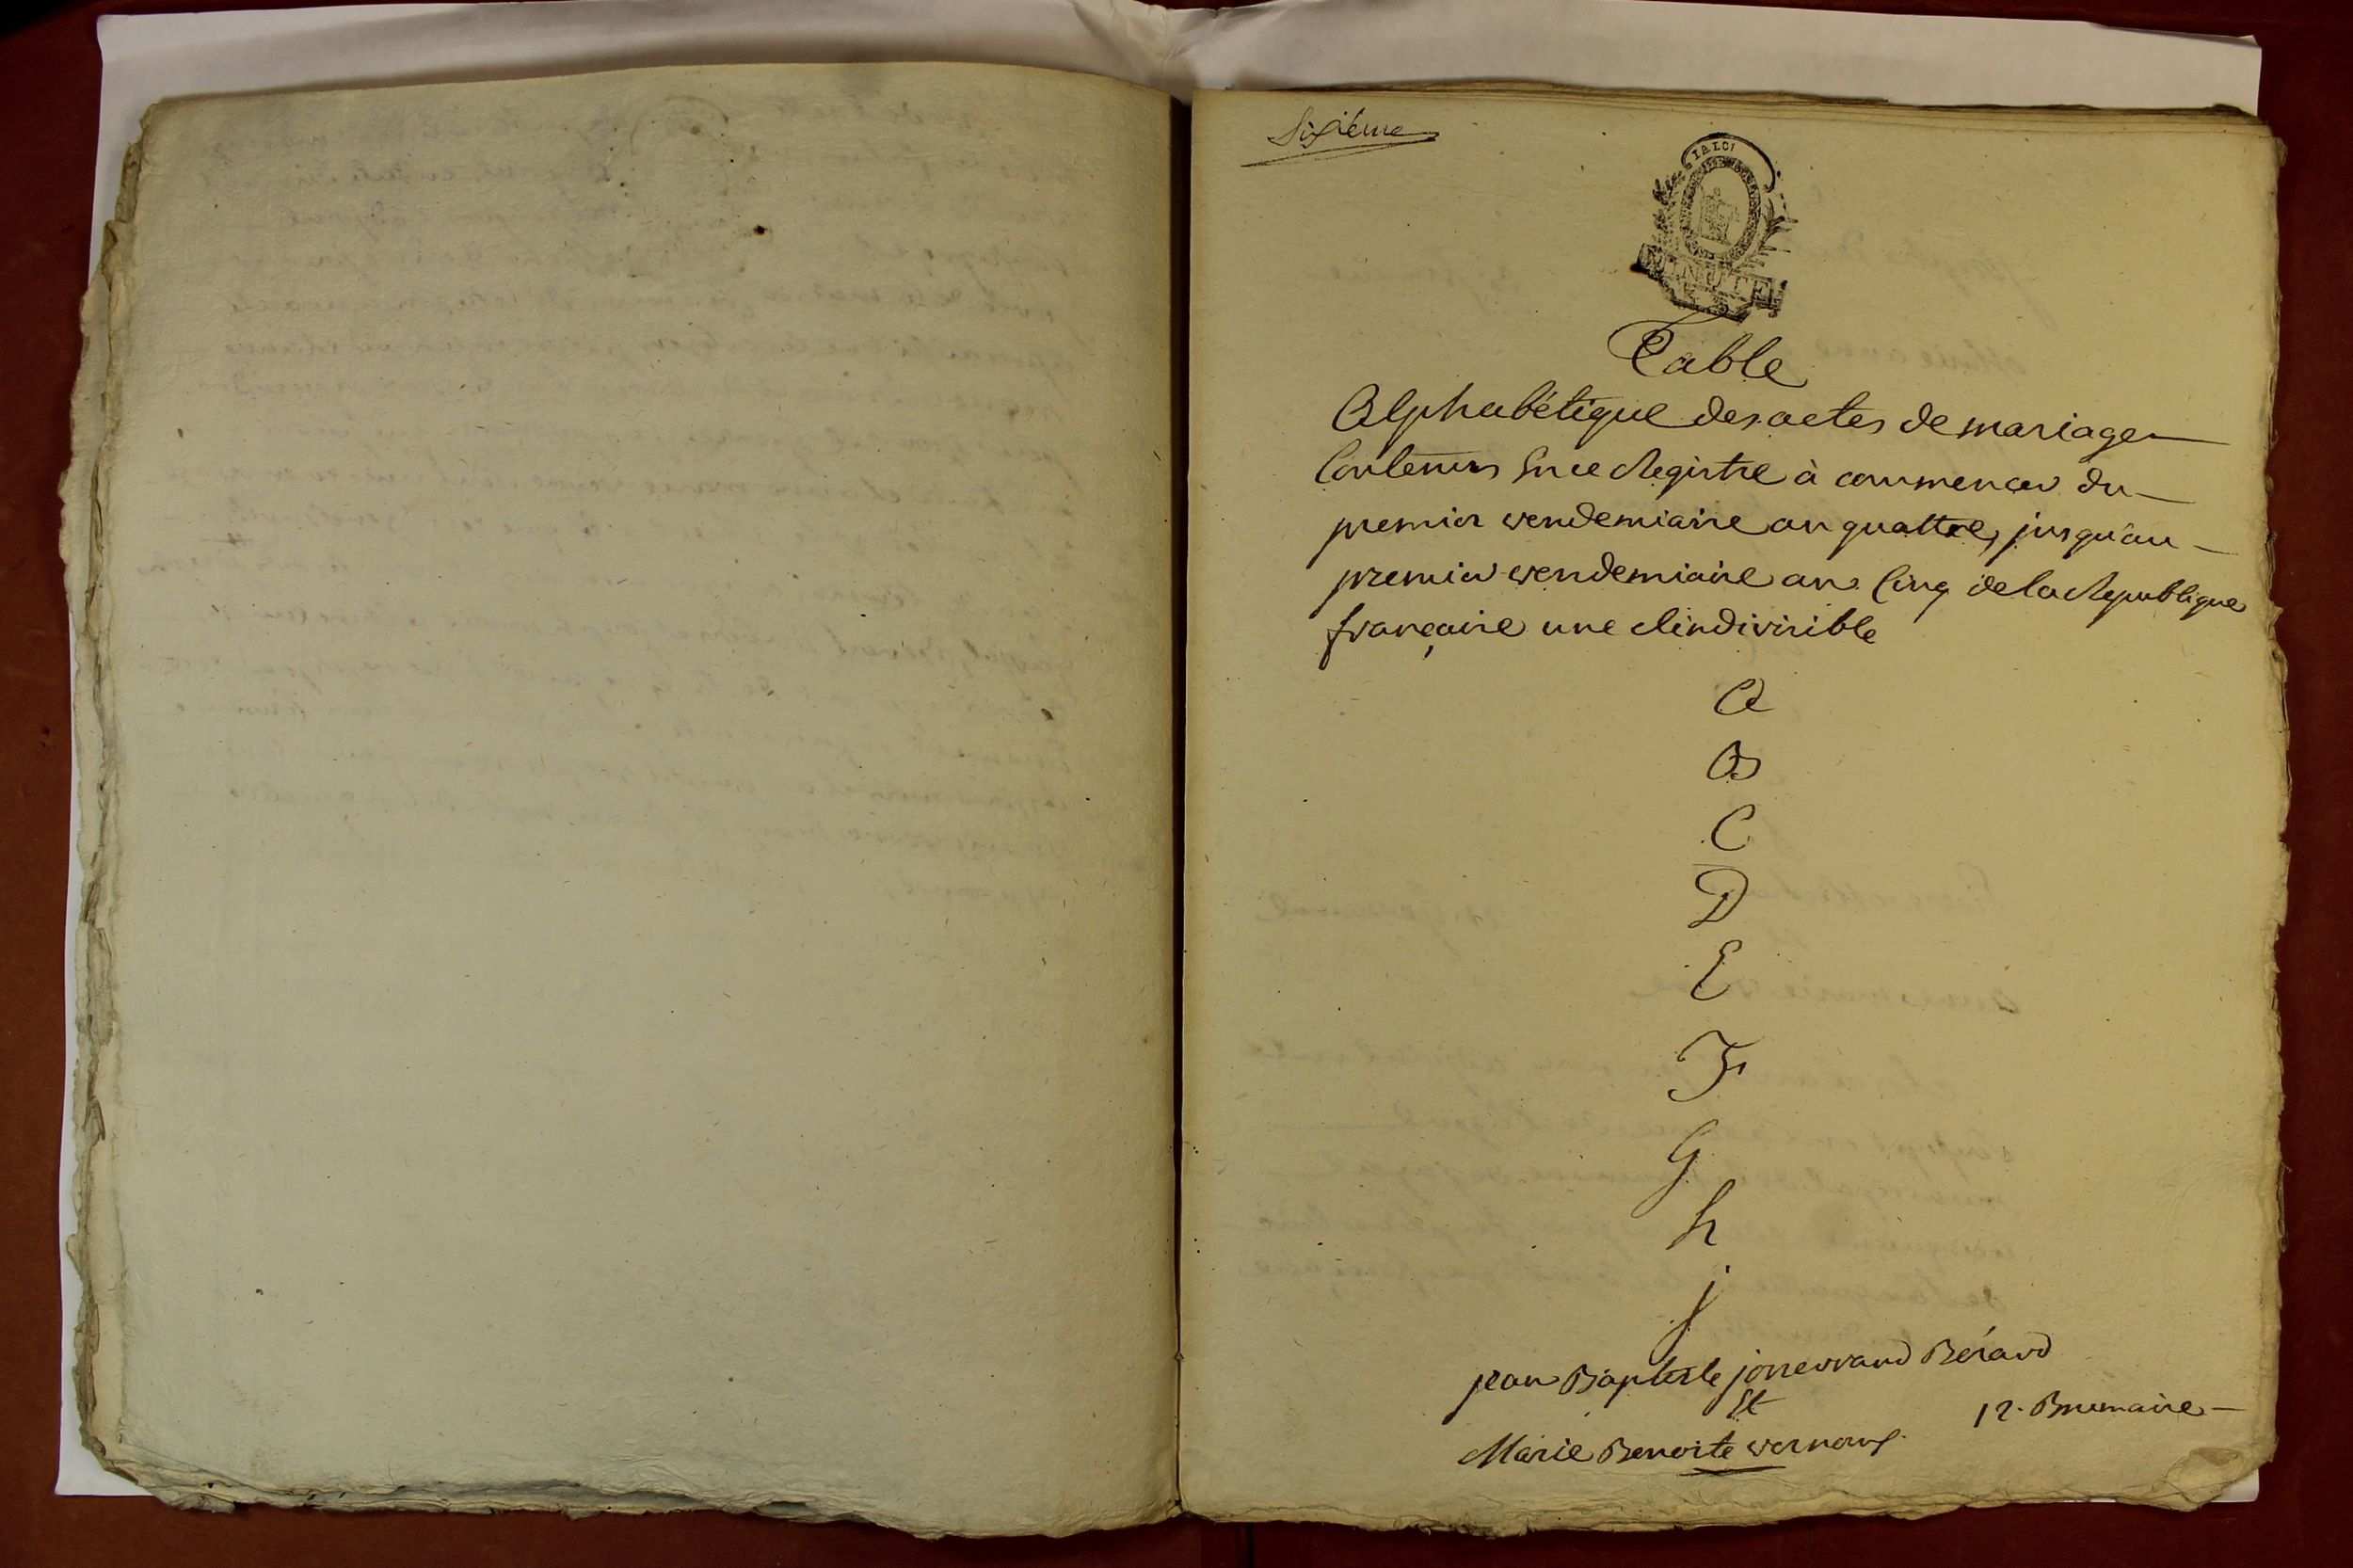 Sixième
LA LOI
MINUTE
Table
Alphabétique des actes de mariage
Contenus En ce Registre à commencer du
premier vendemiaire an quattre, jusqu'au
premier vendemiaire an Cinq de la Republique
françaire une Et indivisible
A
B
C
D
E
F
G
h
j
jean Baptiste jonnervand Bérard
Et
12. Brumaire
Marie Benoite vernay